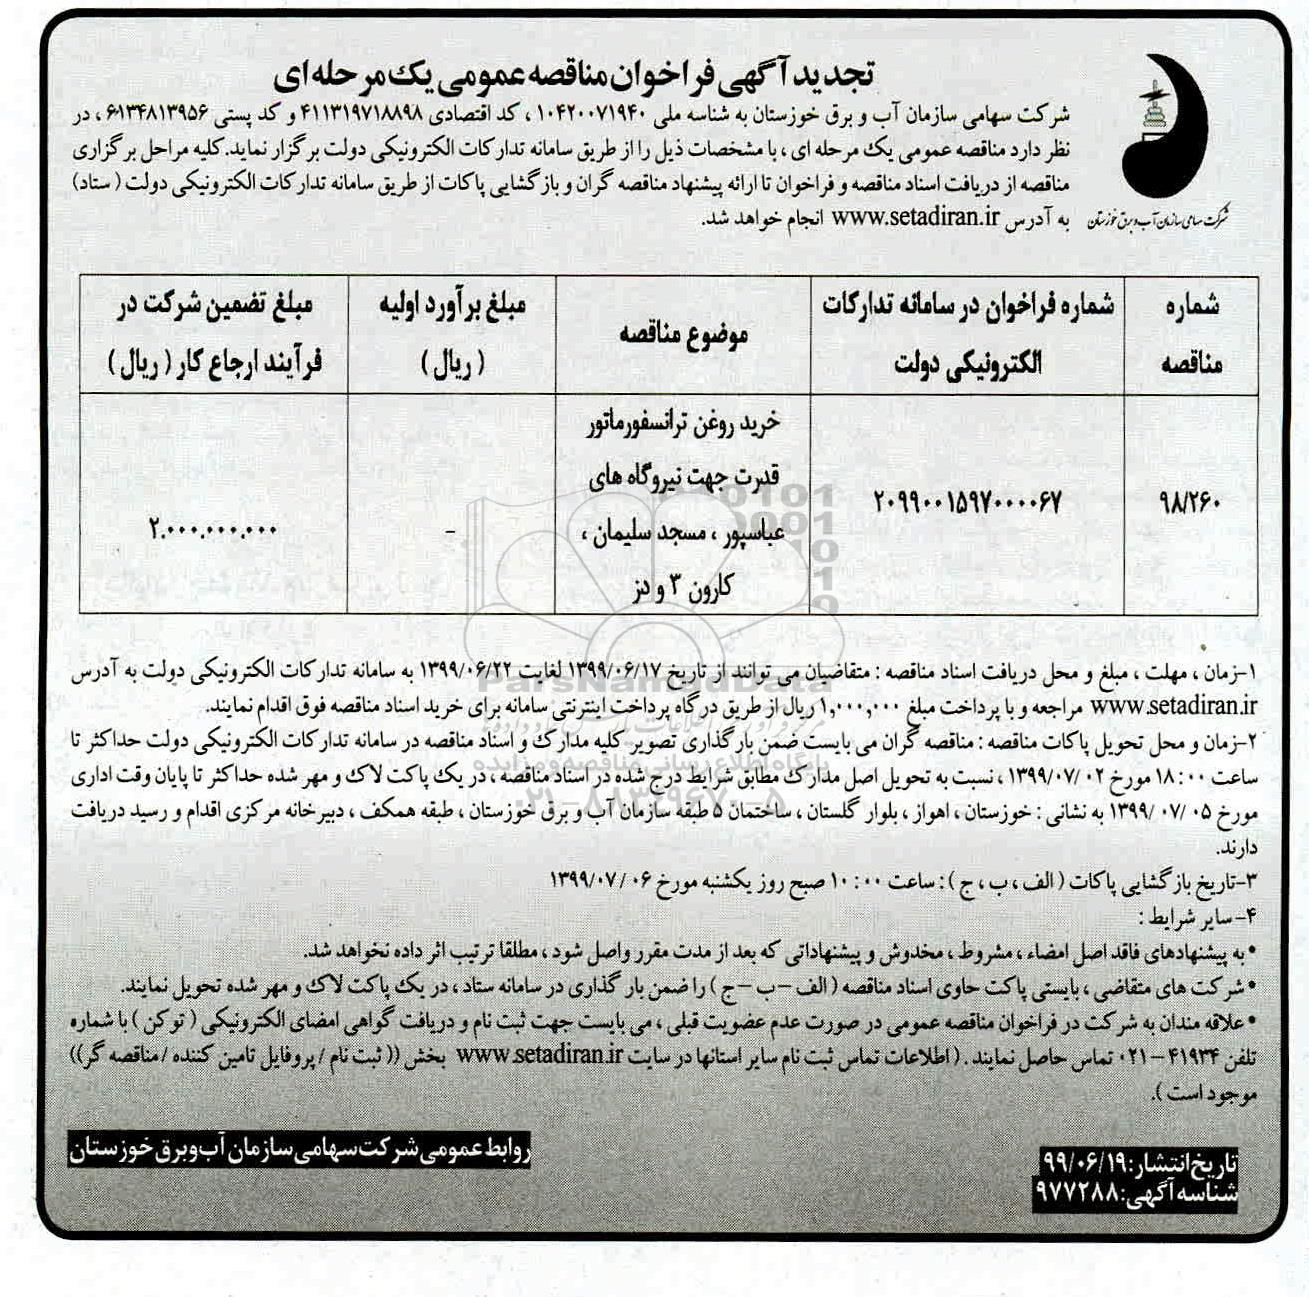 تجدید آگهی فراخوان مناقصه عمومی یک مرحله ای
شرکت سهامی سازمان آب و برق خوزستان به شناسه ملی ۱۰۴۲۰۰۷۱۹۴۰ ، کد اقتصادی ۴۱۱۳۱۹۷۱۸۸۹۸ و کد پستی ۶۱۳۴۸۱۳۹۵۶ ، در
نظر دارد مناقصه عمومی یک مرحله ای ، با مشخصات ذیل را از طریق سامانه تدارکات الکترونیکی دولت برگزار نماید.کلیه مراحل برگزاری
مناقصه از دریافت اسناد مناقصه و فراخوان تا ارائه پیشنهاد مناقصه گران و بازگشایی پاکات از طریق سامانه تدارکات الکترونیکی دولت ( ستاد)
به آدرس www.setadiran.ir انجام خواهد شد.
شرکت سهامی سازمان آب و برق خوزستان
شماره مناقصه
شماره فراخوان در سامانه تدارکات الکترونیکی دولت
موضوع مناقصه
مبلغ برآورد اولیه ( ریال )
مبلغ تضمین شرکت در فرآیند ارجاع کار ( ریال )
۹۸/۲۶۰
۲۰۹۹۰۰۱۵۹۷۰۰۰۰۶۷
خرید روغن ترانسفورماتور
قدرت جهت نیروگاه های
عباسپور ، مسجد سلیمان ،
کارون ۳ و دز
-
۲.۰۰۰.۰۰۰.۰۰۰
ParsNamadData
پایگاه اطلاع رسانی مناقصه و مزایده
۰۲۱-۸۸۳۴۹۶۷۰-۵
۱-زمان ، مهلت ، مبلغ و محل دریافت اسناد مناقصه : متقاضیان می توانند از تاریخ ۱۳۹۹/۰۶/۱۷ لغایت ۱۳۹۹/۰۶/۲۲ به سامانه تدارکات الکترونیکی دولت به آدرس
www.setadiran.ir مراجعه و با پرداخت مبلغ ۱,۰۰۰,۰۰۰ ریال از طریق درگاه پرداخت اینترنتی سامانه برای خرید اسناد مناقصه فوق اقدام نمایند.
۲-زمان و محل تحویل پاکات مناقصه : مناقصه گران می بایست ضمن بارگذاری تصویر کلیه مدارک و اسناد مناقصه در سامانه تدارکات الکترونیکی دولت حداکثر تا
ساعت ۱۸:۰۰ مورخ ۱۳۹۹/۰۷/۰۲ ، نسبت به تحویل اصل مدارک مطابق شرایط درج شده در اسناد مناقصه ، در یک پاکت لاک و مهر شده حداکثر تا پایان وقت اداری
مورخ ۱۳۹۹/۰۷/۰۵ به نشانی : خوزستان ، اهواز ، بلوار گلستان ، ساختمان ۵ طبقه سازمان آب و برق خوزستان ، طبقه همکف ، دبیرخانه مرکزی اقدام و رسید دریافت
دارند.
۳-تاریخ بازگشایی پاکات ( الف ، ب ، ج ) : ساعت ۱۰:۰۰ صبح روز یکشنبه مورخ ۱۳۹۹/۰۷/۰۶
۴- سایر شرایط :
• به پیشنهادهای فاقد اصل امضاء ، مشروط ، مخدوش و پیشنهاداتی که بعد از مدت مقرر واصل شود ، مطلقا ترتیب اثر داده نخواهد شد.
• شرکت های متقاضی ، بایستی پاکت حاوی اسناد مناقصه ( الف – ب – ج ) را ضمن بار گذاری در سامانه ستاد ، در یک پاکت لاک و مهر شده تحویل نمایند.
• علاقه مندان به شرکت در فراخوان مناقصه عمومی در صورت عدم عضویت قبلی ، می بایست جهت ثبت نام و دریافت گواهی امضای الکترونیکی ( توکن ) با شماره
تلفن ۴۱۹۳۴ – ۰۲۱ تماس حاصل نمایند . ( اطلاعات تماس ثبت نام سایر استانها در سایت www.setadiran.ir بخش (( ثبت نام / پروفایل تامین کننده / مناقصه گر))
موجود است ).
روابط عمومی شرکت سهامی سازمان آب و برق خوزستان
تاریخ انتشار: ۹۹/۰۶/۱۹
شناسه آگهی: ۹۷۷۲۸۸